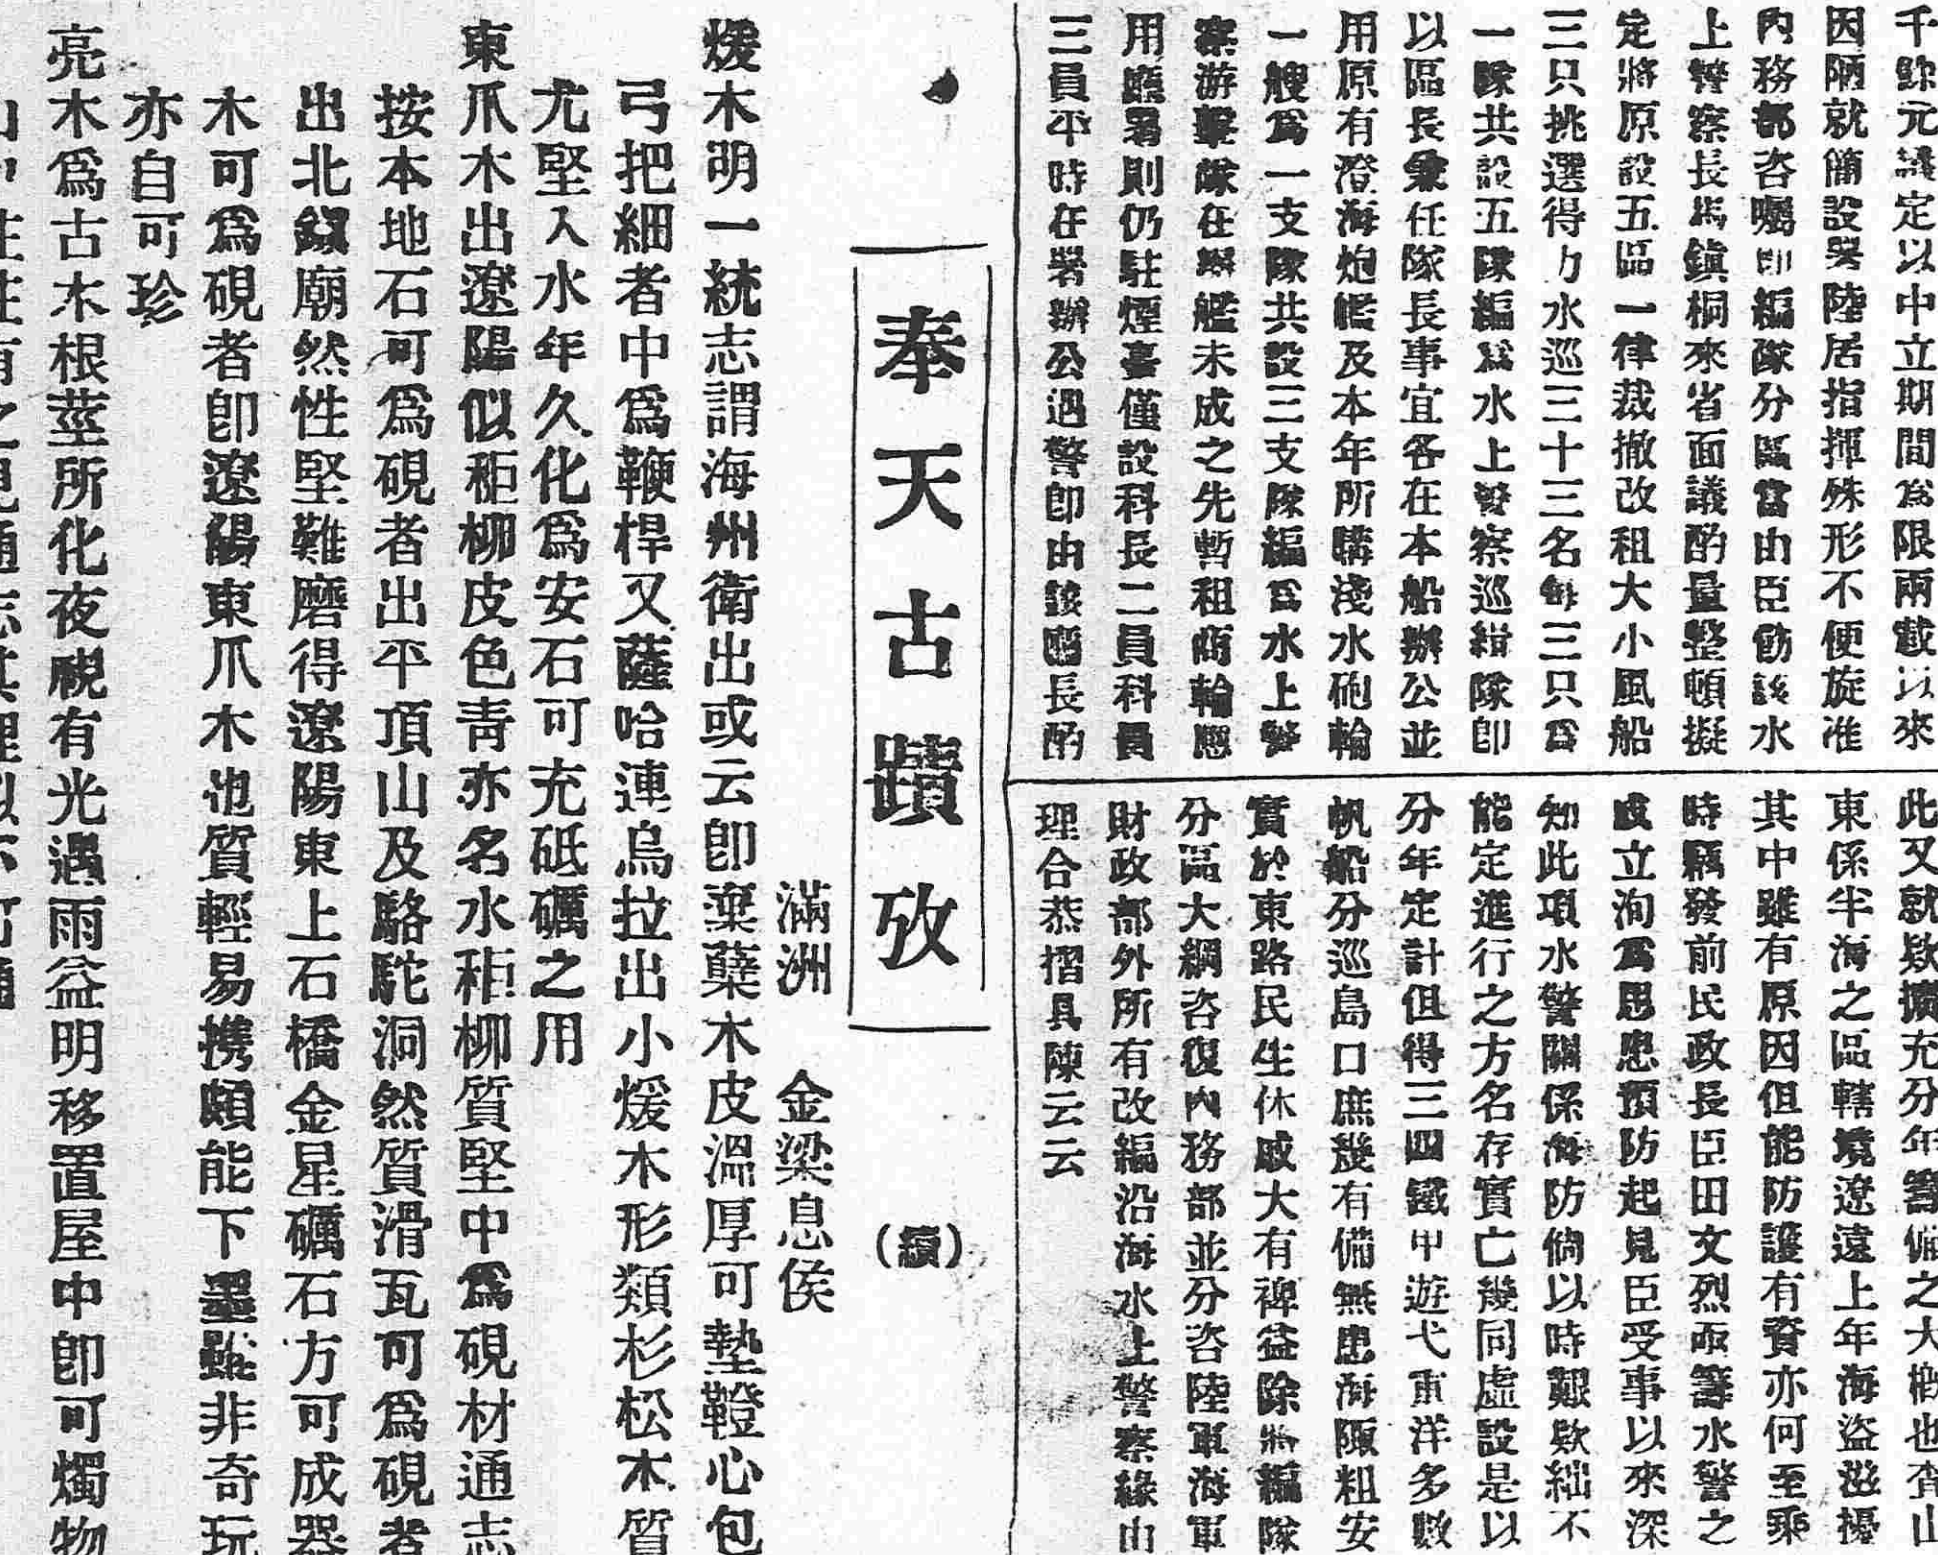 千餘元議定以中立期間爲限兩載以來
因陋就簡設署陸居指揮殊形不便旋准
內務部咨囑卽編隊分區當由臣飭該水
上警察長馮鎭桐來省面議酌量整頓擬
定將原設五區一律裁撤改租大小風船
三只挑選得力水巡三十三名每三只爲
一隊共設五隊編爲水上警察巡緝隊卽
以區長兼任隊長事宜各在本船辦公並
用原有澄海炮艦及本年所購淺水砲輪
一艘爲一支隊共設三支隊編爲水上警
察游擊隊在艦未成之先暫租商輪應
用廳署則仍駐煙臺僅設科長二員科員
三員平時在署辦公遇警卽由該廳長酌
此又就欵擴充分年籌備之大槪也査山
東係半海之區轄境遼遠上年海盜滋擾
其中雖有原因但能防護有資亦何至乘
時竊發前民政長臣田文烈亟籌水警之
成立洵爲思患預防起見臣受事以來深
知此項水警關係海防倘以時艱欵絀不
能定進行之方名存實亡幾同虛設是以
分年定計但得三四鐵甲遊弋重洋多數
帆船分巡島口庶幾有備無患海隅粗安
實於東路民生休戚大有裨益除將編隊
分區大綱咨復內務部並分咨陸軍海軍
財政部外所有改編沿海水上警察緣由
理合恭摺具陳云云
奉天古蹟攷
（續）
滿洲 金梁息侯
煖木明一統志謂海州衛出或云卽蘗木皮溫厚可墊鞾心包
弓把細者中爲鞭桿又薩哈連烏拉出小煖木形類杉松木質
尤堅入水年久化爲安石可充砥礪之用
東爪木出遼陽似秬柳皮色靑亦名水秬柳質堅中爲硯材通志
按本地石可爲硯者出平頂山及駱駝洞然質滑瓦可爲硯者
出北鎭廟然性堅難磨得遼陽東上石橋金星礪石方可成器
木可爲硯者卽遼陽東爪木也質輕易携頗能下墨雖非奇玩
亦自可珍
亮木爲古木根莖所化夜視有光遇雨益明移置屋中卽可燭物